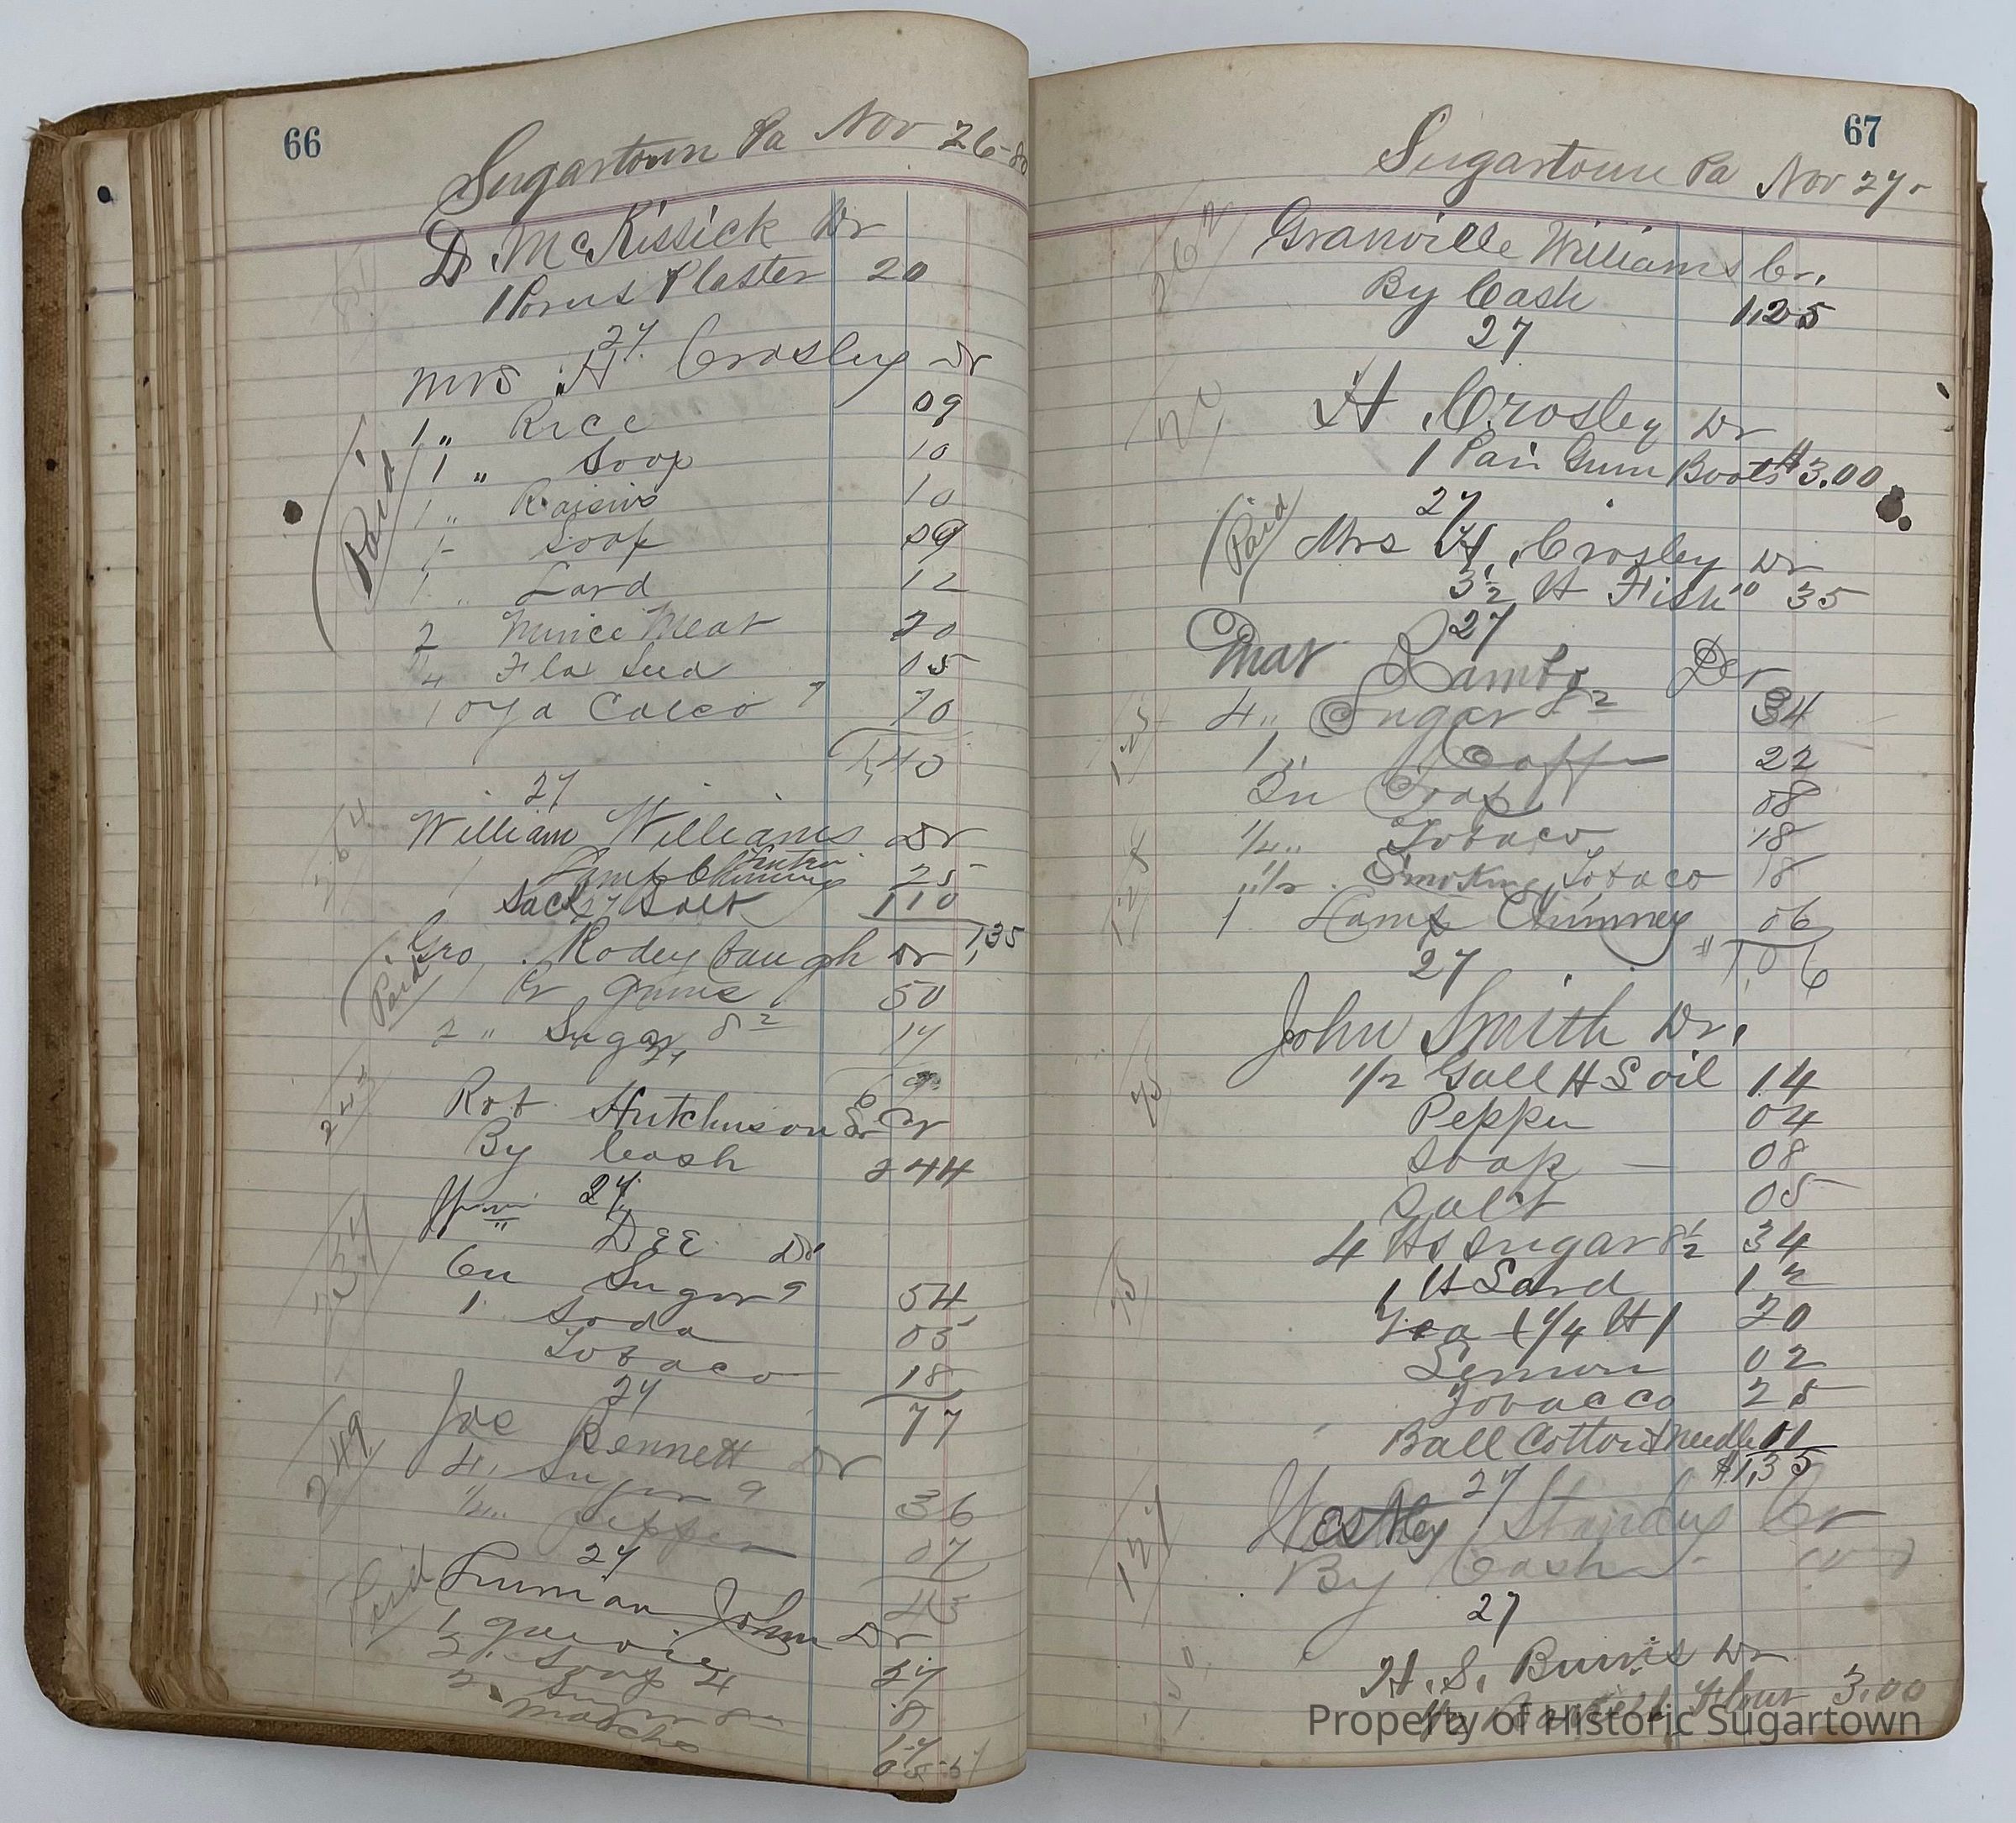 66
Sugartown Pa Nov 26-80
D. McKissick Dr
1 Porus Plaster 20
27
Mrs H Crosley Dr
Paid
1 " Rice 09
1 " Soop 10
1 " Raisins 10
1 - Soop 09
1 " Lard 12
2 Mince Meat 20
" Flax Seed 05
10 yd Calco 7 70
1,40
27
William Williams Dr
1 Lamp Chimney 25
Sack Salt 110
1,35
Geo. Rodeybaugh Dr
Paid
1 Pr Gums 50
2 " Sugar 8 2 17
27
244
Rob Hutchinson Sr Cr
By Cash 244
27
237
Wm DEE Dr
6 " Sugar 9 54
1 Soda 05
Tobaco 18
77
27
249
Joe Bennett Dr
4 " Sugar 9 36
1/4 " Pepper 07
43
27
Paid
Truman John Dr
1 27
2 " Soap 4 8
2 17
Matchs 05
67
Sugartown Pa Nov 27-
262
Granville Williams Cr.
By Cash
1,25
27
H. Crosley Dr
1 Pair Gum Boots $3.00
27
Paid
Mrs H. Crosley Dr
3 1/2 lt Fish 10 35
27
Mat Rambo Dr
125
4 " Sugar 8 2 34
1 " Coffe 22
2 " Soap 08
1/4 " Tobaco 18
128
" 1/2 . Smoking Tobaco 18
1 Lamp Chimney 06
" 1,06
27
John Smith Dr.
75
1/2 Gall H S oil 14
Pepper 04
Soap — 08
Salt 05
4 lts sugar 8 1/2 34
75
1 lt Lard 12
Tea (1/4 lt) 20
Lemon 02
Tobacco 25
Ball Cotton & needle 11
$1,35
27
127
Westley Standus Cr
By Cash
27
H. S. Burns Dr
1/2 Barrell Flour 3.00
Property of Historic Sugartown